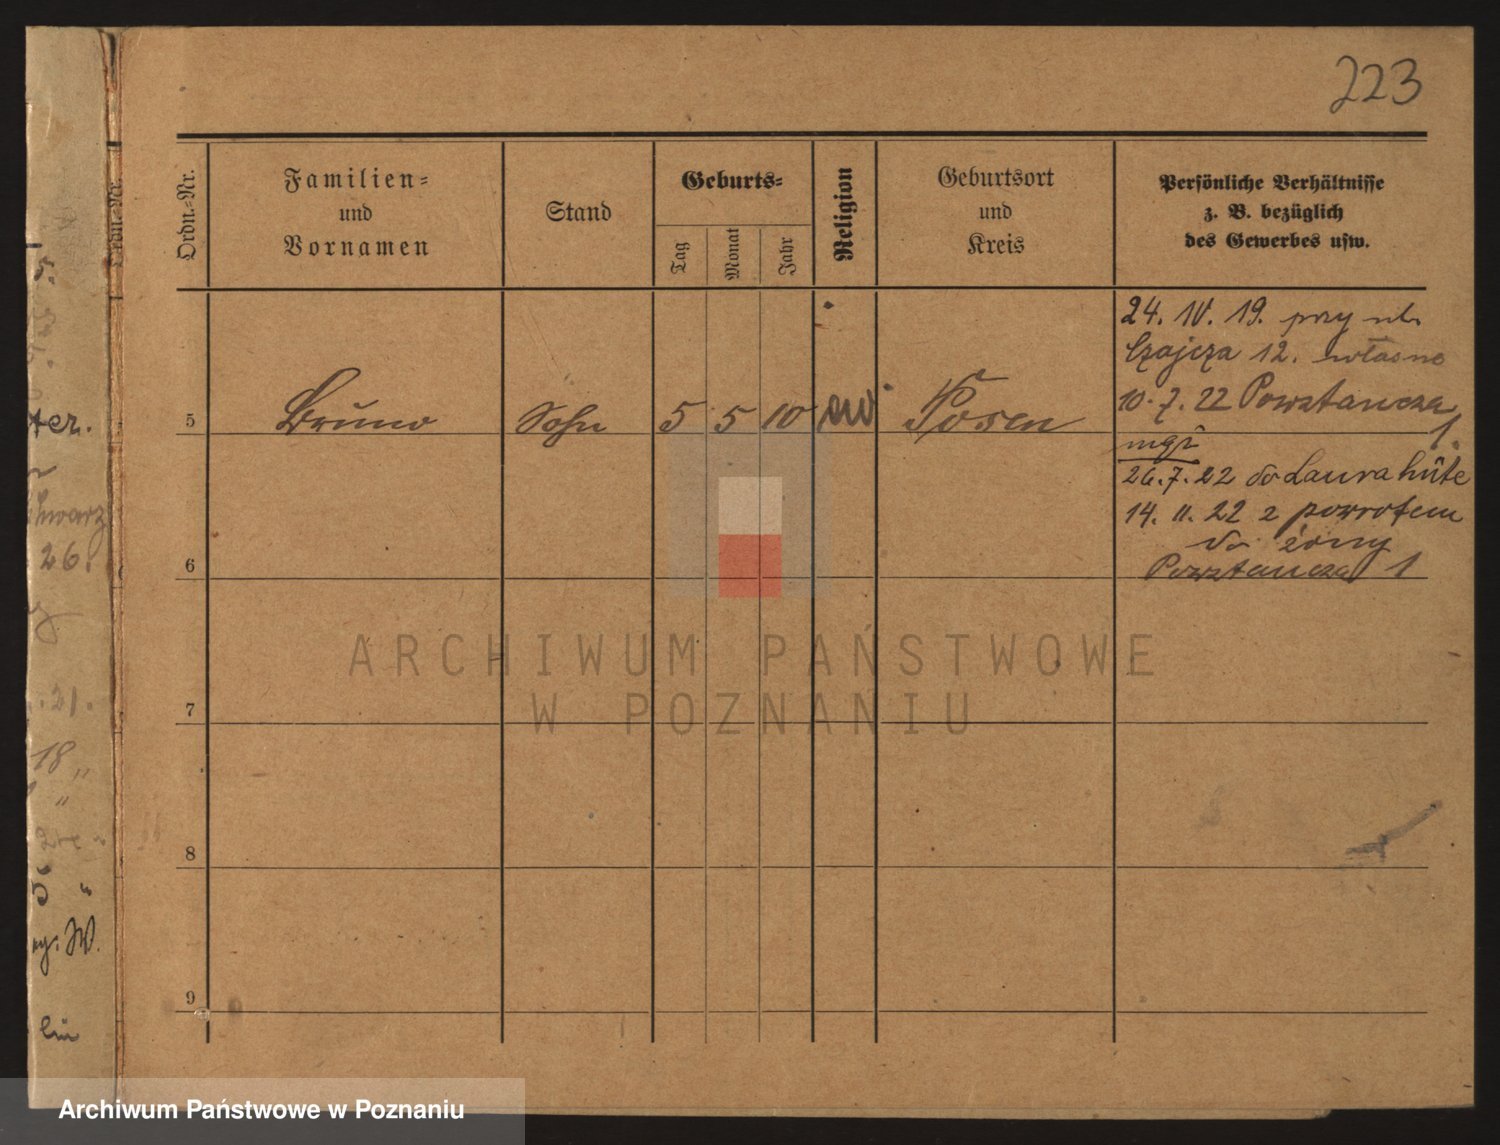 223
Ordn.-Nr.
Familien-
und
Vornamen
Stand
Geburts-
Tag
Monat
Jahr
Religion
Geburtsort
und
Kreis
Persönliche Verhältnisse
z. B. bezüglich
des Gewerbes usw.
24. IV. 19. przy ul.
Czajcza 12. własne
10. 7. 22 Powstancza
1.
5 Bruno Sohn 5 5 10 ew Posen
26. 7. 22 do Laurahüte
14. 11. 22 z powrotem
do żony
Powstancza 1
6
7
8
9
Ordn.-Nr.
ter.
hwarz
26.
.21.
18 "
"
W.
ARCHIWUM PAŃSTWOWE
W POZNANIU
Archiwum Państwowe w Poznaniu